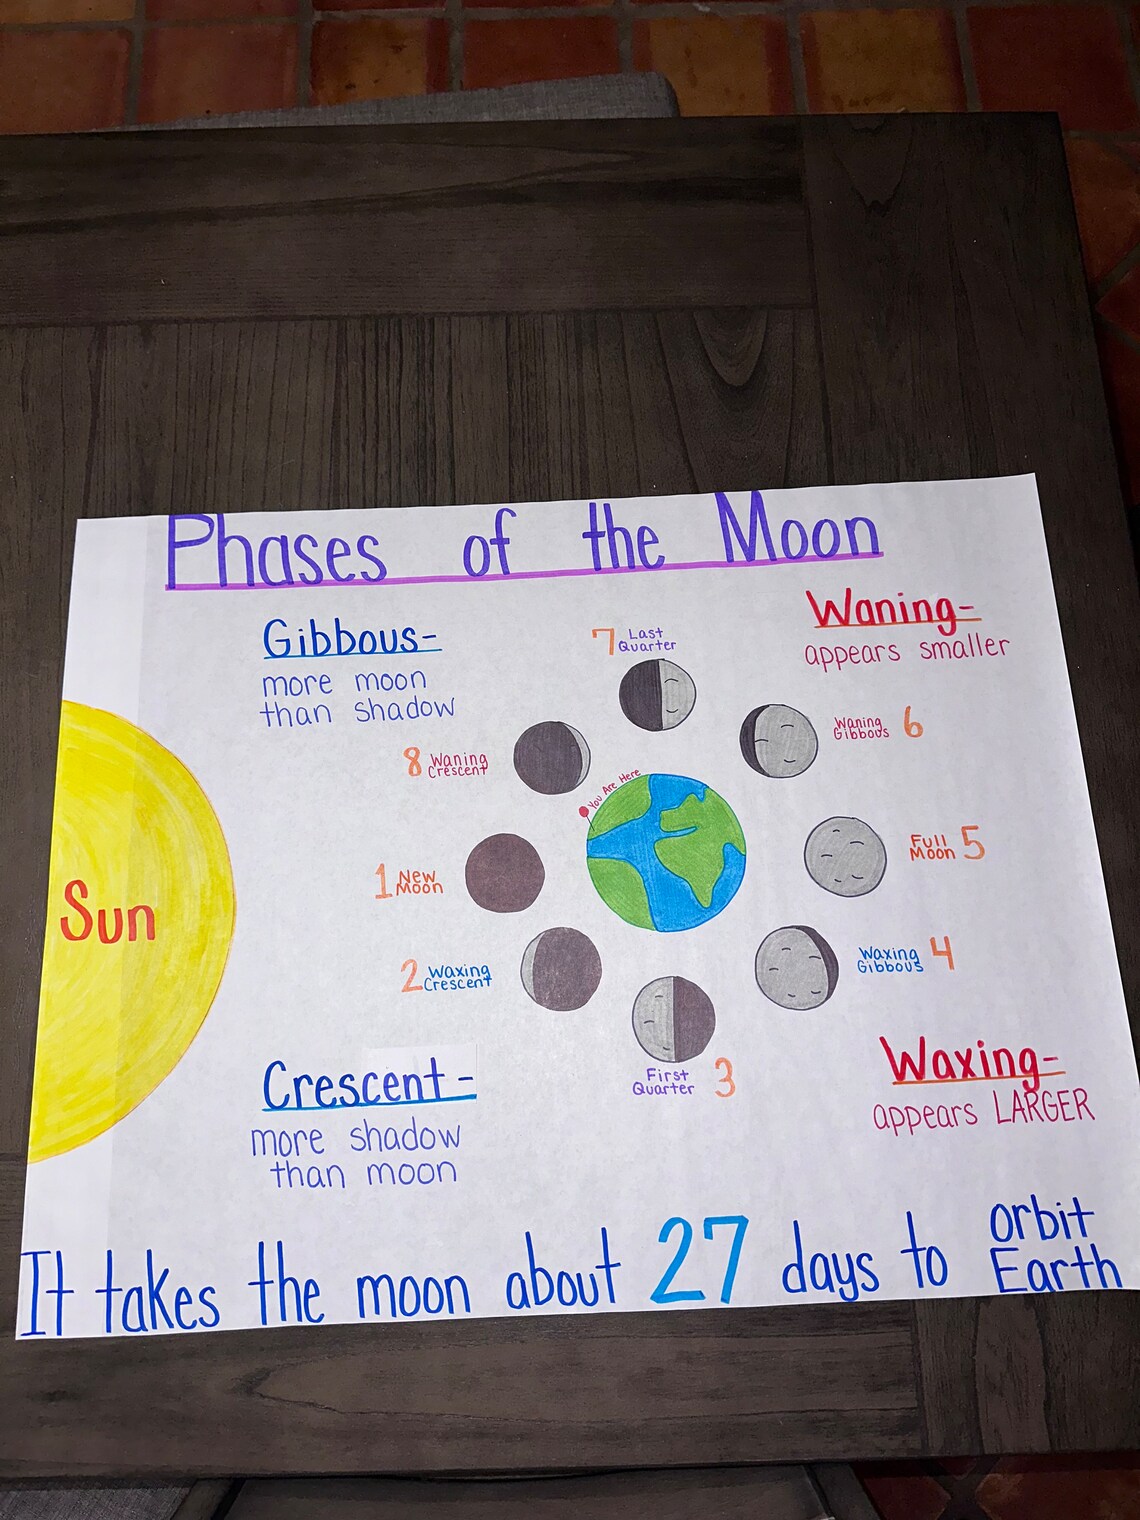 Phases of the Moon
Gibbous-
more moon
than shadow
Waning-
appears smaller
7 Last
Quarter
8 Waning
Crescent
Waning
Gibbous 6
You Are Here
Sun
1 New
Moon
Full
Moon 5
2 Waxing
Crescent
Waxing
Gibbous 4
First
Quarter 3
Crescent-
more shadow
than moon
Waxing-
appears LARGER
It takes the moon about 27 days to orbit
Earth